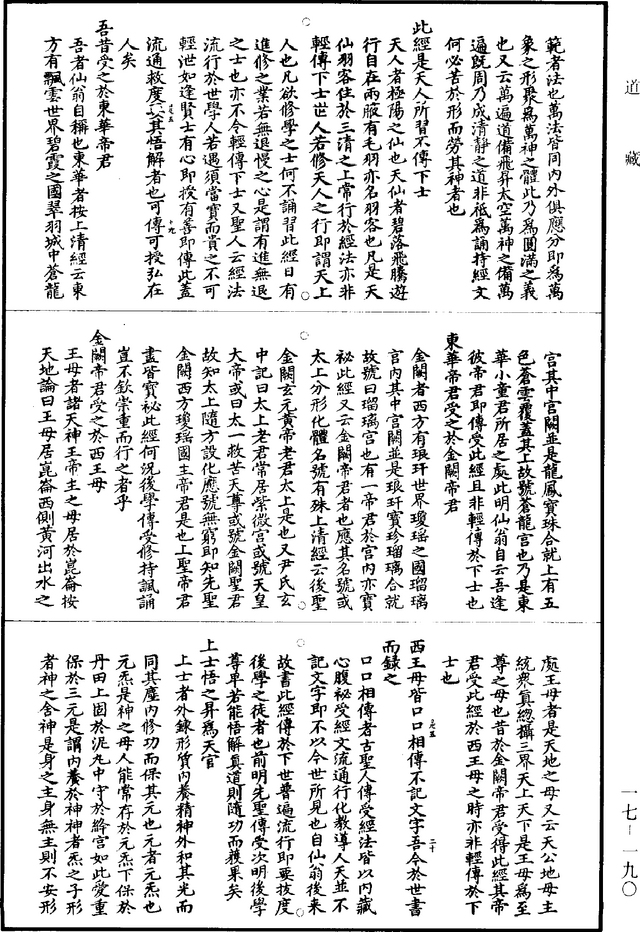 道藏
範者法也萬法皆同內外俱應分即為萬
象之形聚為萬神之體此乃為圓滿之義
也又云萬遍道備飛昇太空萬神之備萬
遍既周乃成清靜之道非秪為誦持經文
何必苦於形而勞其神者也
此經是天人所習不傳下士
天人者極陽之仙也天仙者碧落飛騰遊
行自在兩腋有毛羽亦名羽客也凡是天
仙羽客住於三清之上常行於經法亦非
輕傳下士世人若修天人之行即謂天上
人也凡欲修學之士何不誦習此經日有
進修之業若無退慢之心是謂有進無退
之士也亦不令輕傳下士又聖人云經法
流行於世學人若遇須當寶而貴之不可
輕泄如逢賢士有心即授有善即傳此蓋
流通救度以其悟解者也可傳可授弘在
人矣
吾昔受之於東華帝君
吾者仙翁自稱也東華者按上清經云東
方有飄雲世界碧霞之國翠羽城中蒼龍
宮其中宮闕並是龍鳳寶珠合就上有五
色蒼雲覆蓋其上故號蒼龍宮也乃是東
華小童君所居之處此明仙翁自云吾逢
彼帝君即傳受此經且非輕傳於下士也
東華帝君受之於金闕帝君
金闕者西方有琅玕世界瓊瑤之國瑠璃
宮內其中宮闕並是琅玕寶珍瑠璃合就
故號曰瑠璃宮也有一帝君於宮內亦寶
祕此經又云金闕帝君者也應其名號或
太上分形化體名號有殊上清經云後聖
金闕玄元黃帝老君太上是也又尹氏玄
中記曰太上老君常居紫微宮或號天皇
大帝或曰太一救苦天尊或號金闕聖君
故知太上隨方設化應號無窮即知先聖
金闕西方瓊瑤國主帝君是也上聖帝君
盡皆寶祕此經何況後學傳受修持諷誦
豈不欽崇重而行之者乎
金闕帝君受之於西王母
王母者諸天神王帝主之母居於崑崙按
天地論曰王母居崑崙西側黃河出水之
處王母者是天地之母又云天公地母主
統眾真總攝三界天上天下是王母為至
尊之母也昔於金闕帝君受得此經其帝
君受此經於西王母之時亦非輕傳於下
士也
西王母皆口口相傳不記文字吾今於世書
而錄之
口口相傳者古聖人傳受經法皆以內藏
心腹祕受經文流通行化教導人天並不
記文字即不以今世所見也自仙翁後來
故書此經傳於下世普遍流行即要拔度
後學之徒者也前明先聖傳受次明後學
尊卑若能悟解真道則隨功而獲果矣
上士悟之昇為天官
上士者外鍊形質內養精神外和其光而
同其塵內修功而保其元也元者元炁也
元炁是神之母人能常存於元炁下保於
丹田上固於泥丸中守於絳宮如此愛重
保於三元是謂內養於神神者炁之子形
者神之舍神是身之主身無主則不安形
一七-一九〇